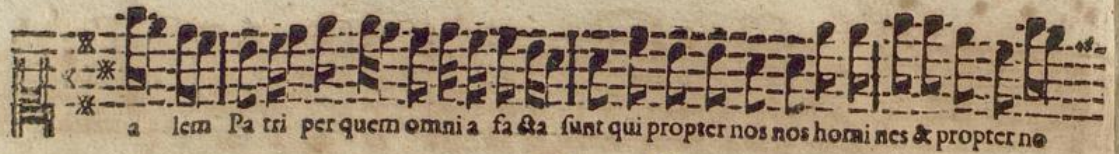 a lem Pa tri per quem omni a fa cta sunt qui propter nos nos homi nes & propter no